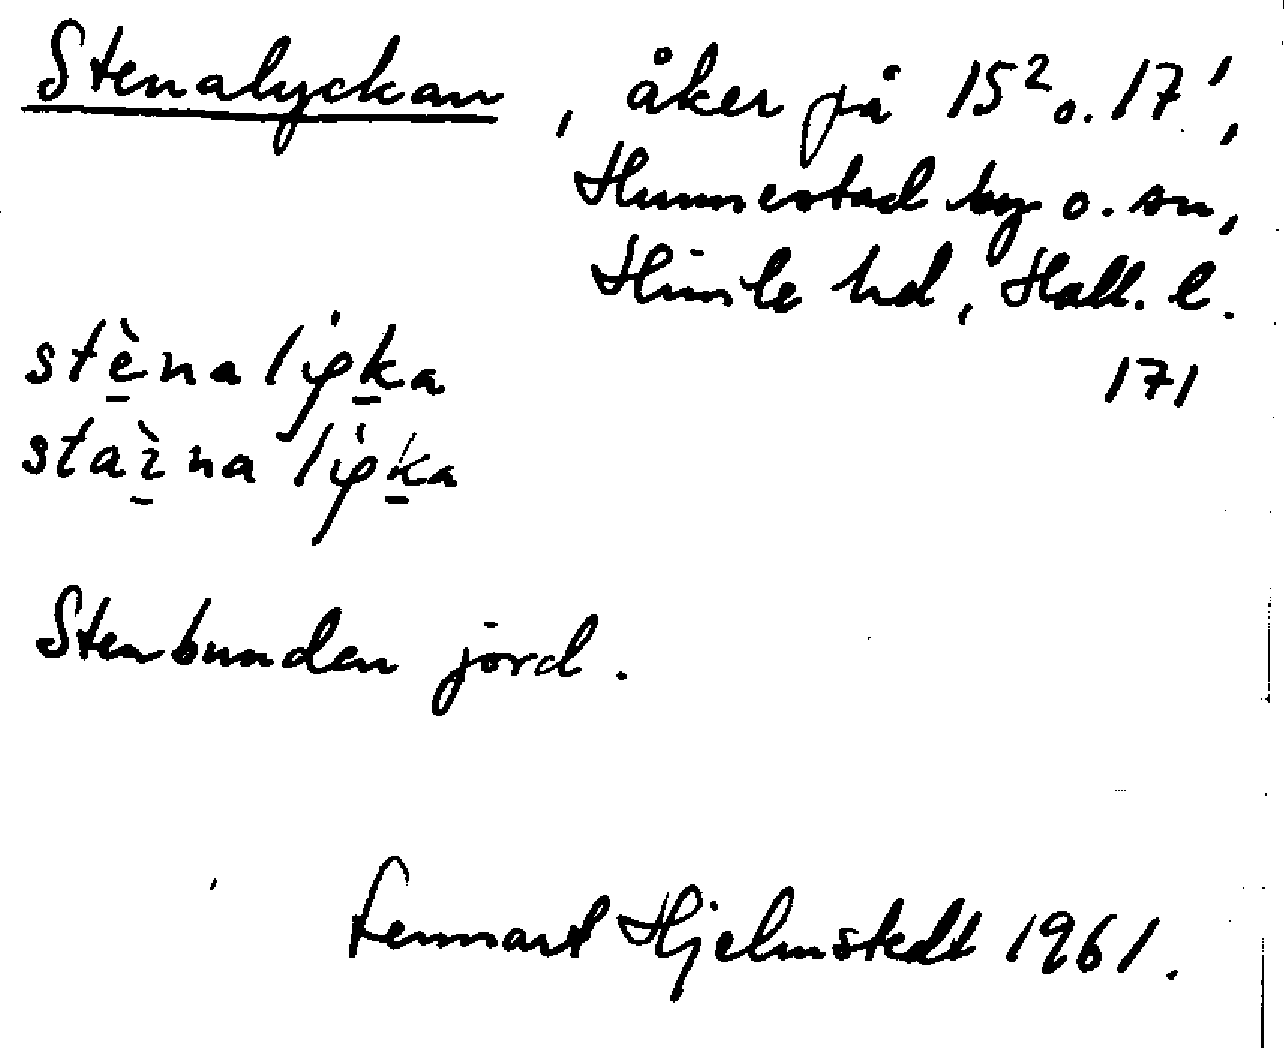 Stenalyckan, åker på 15² o. 17¹,
Hunnestad by o. sn,
Himle hd, Hall. l.
171
Stenbunden jord.
Lennart Hjelmstedt 1961.